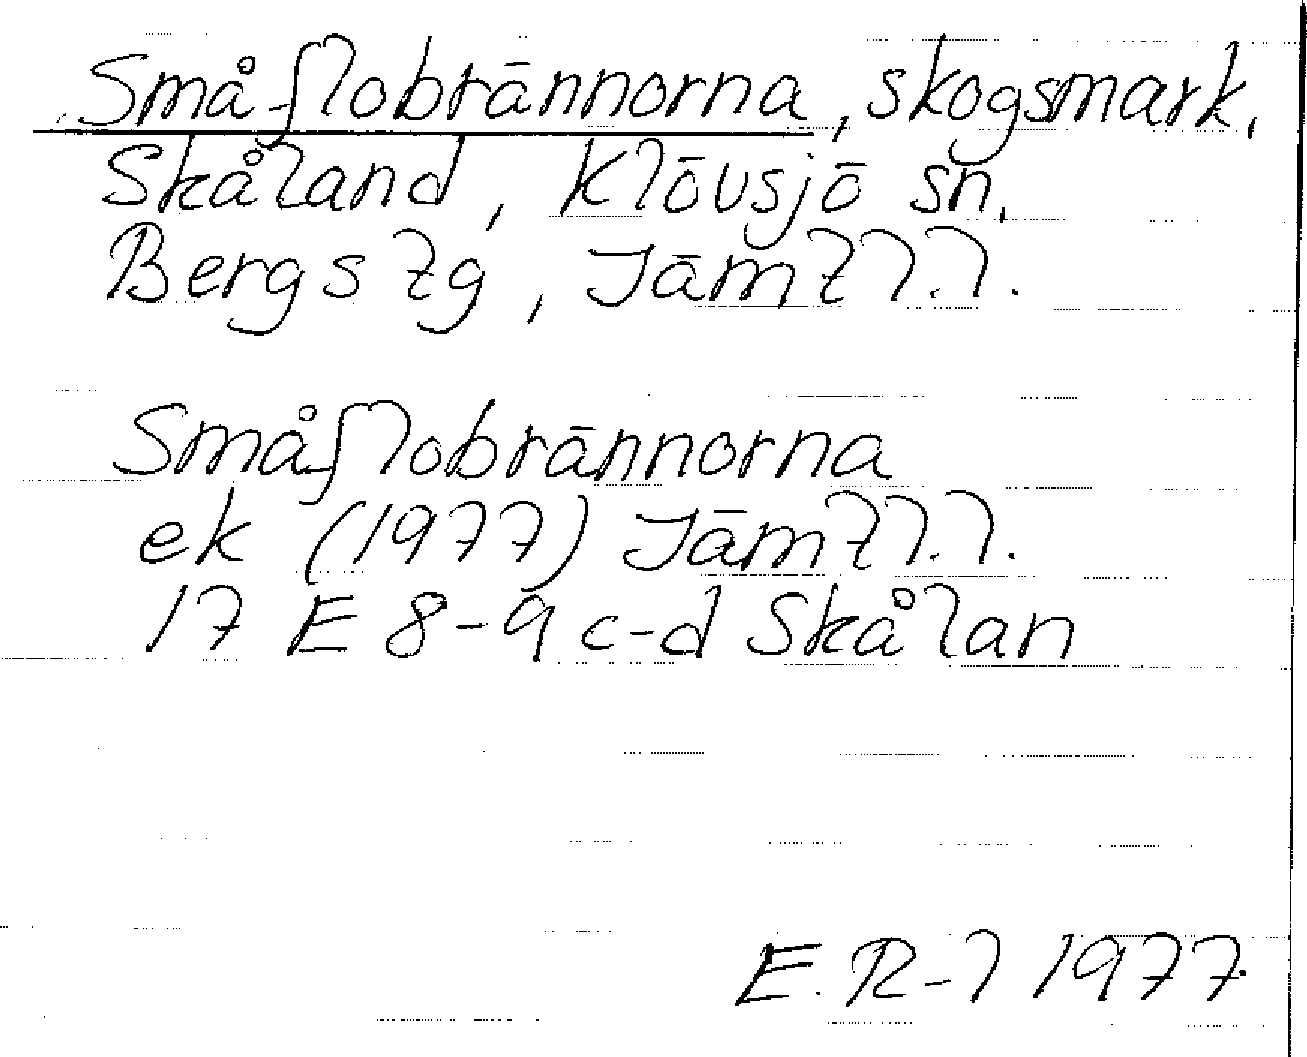 Småflobrännorna, skogsmark,
Skåland, Klövsjö sn,
Bergs tg, Jämtl.l.
Småflobrännorna
ek (1977) Jämtl.l.
17 E 8-9 c-d Skålan
E. R-l 1977